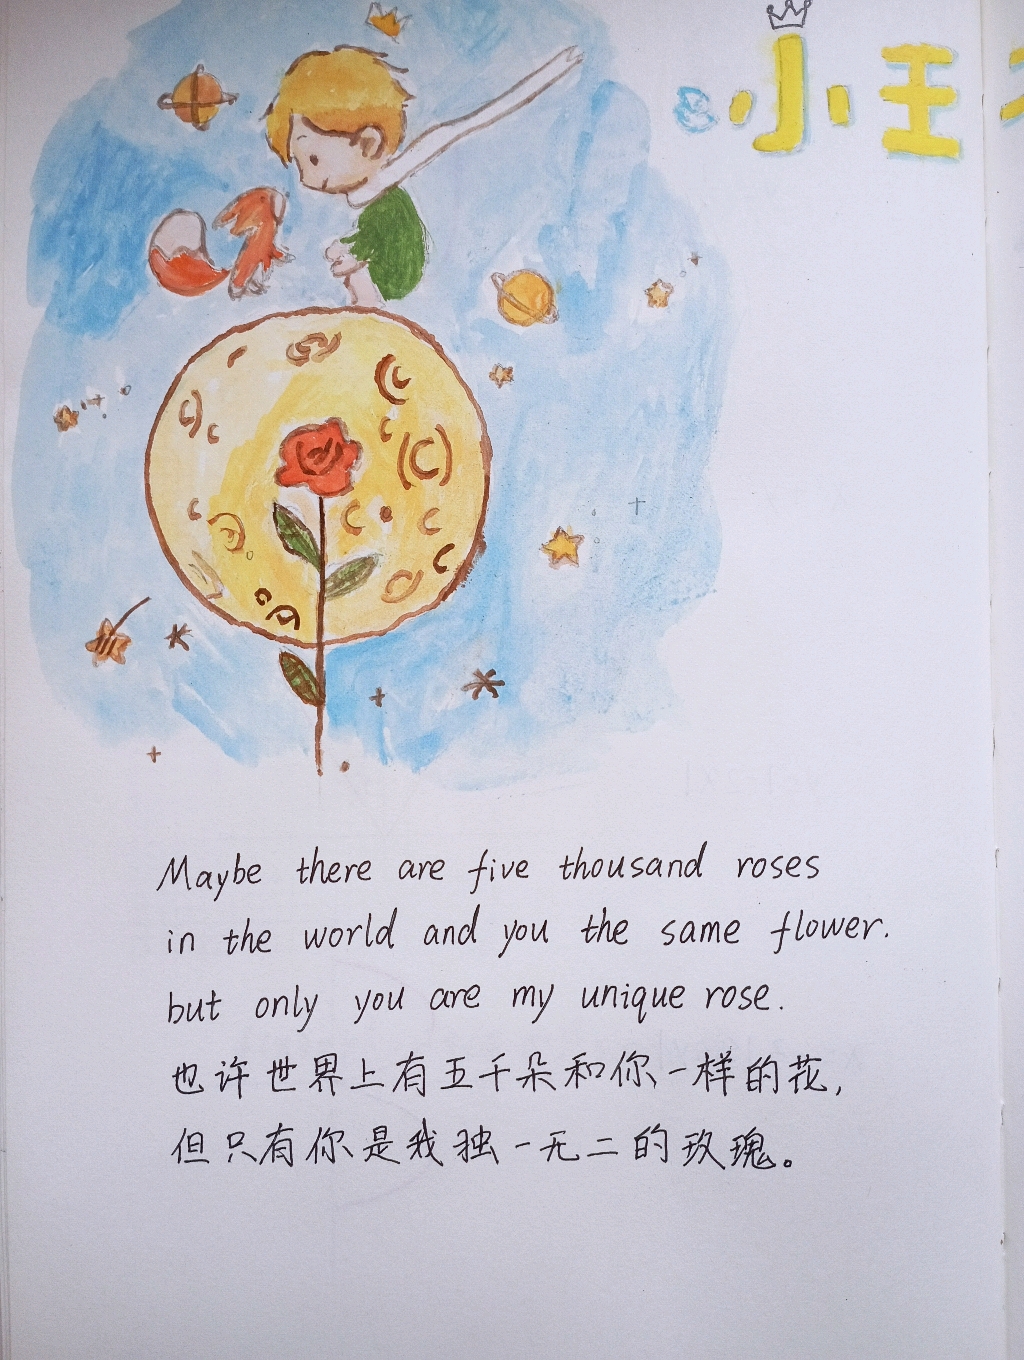 小王
Maybe there are five thousand roses
in the world and you the same flower.
but only you are my unique rose.
也许世界上有五千朵和你一样的花,
但只有你是我独一无二的玫瑰。